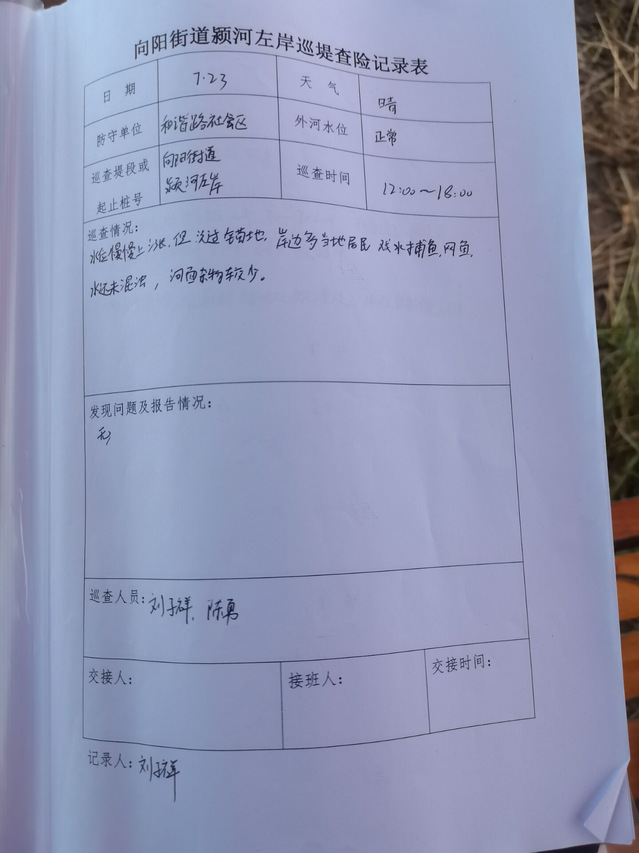 向阳街道颍河左岸巡堤查险记录表
日 期 7.23 天 气 晴
防守单位 和谐路社会区 外河水位 正常
巡查堤段或起止桩号 向阳街道颍河左岸 巡查时间 12:00~18:00
巡查情况:
水位慢慢上涨,但没过草地,岸边多当地居民戏水捕鱼,网鱼,
水还未混浊,河面杂物较少。
发现问题及报告情况:
无
巡查人员:刘子祥、陈勇
交接人: 接班人: 交接时间:
记录人:刘子祥